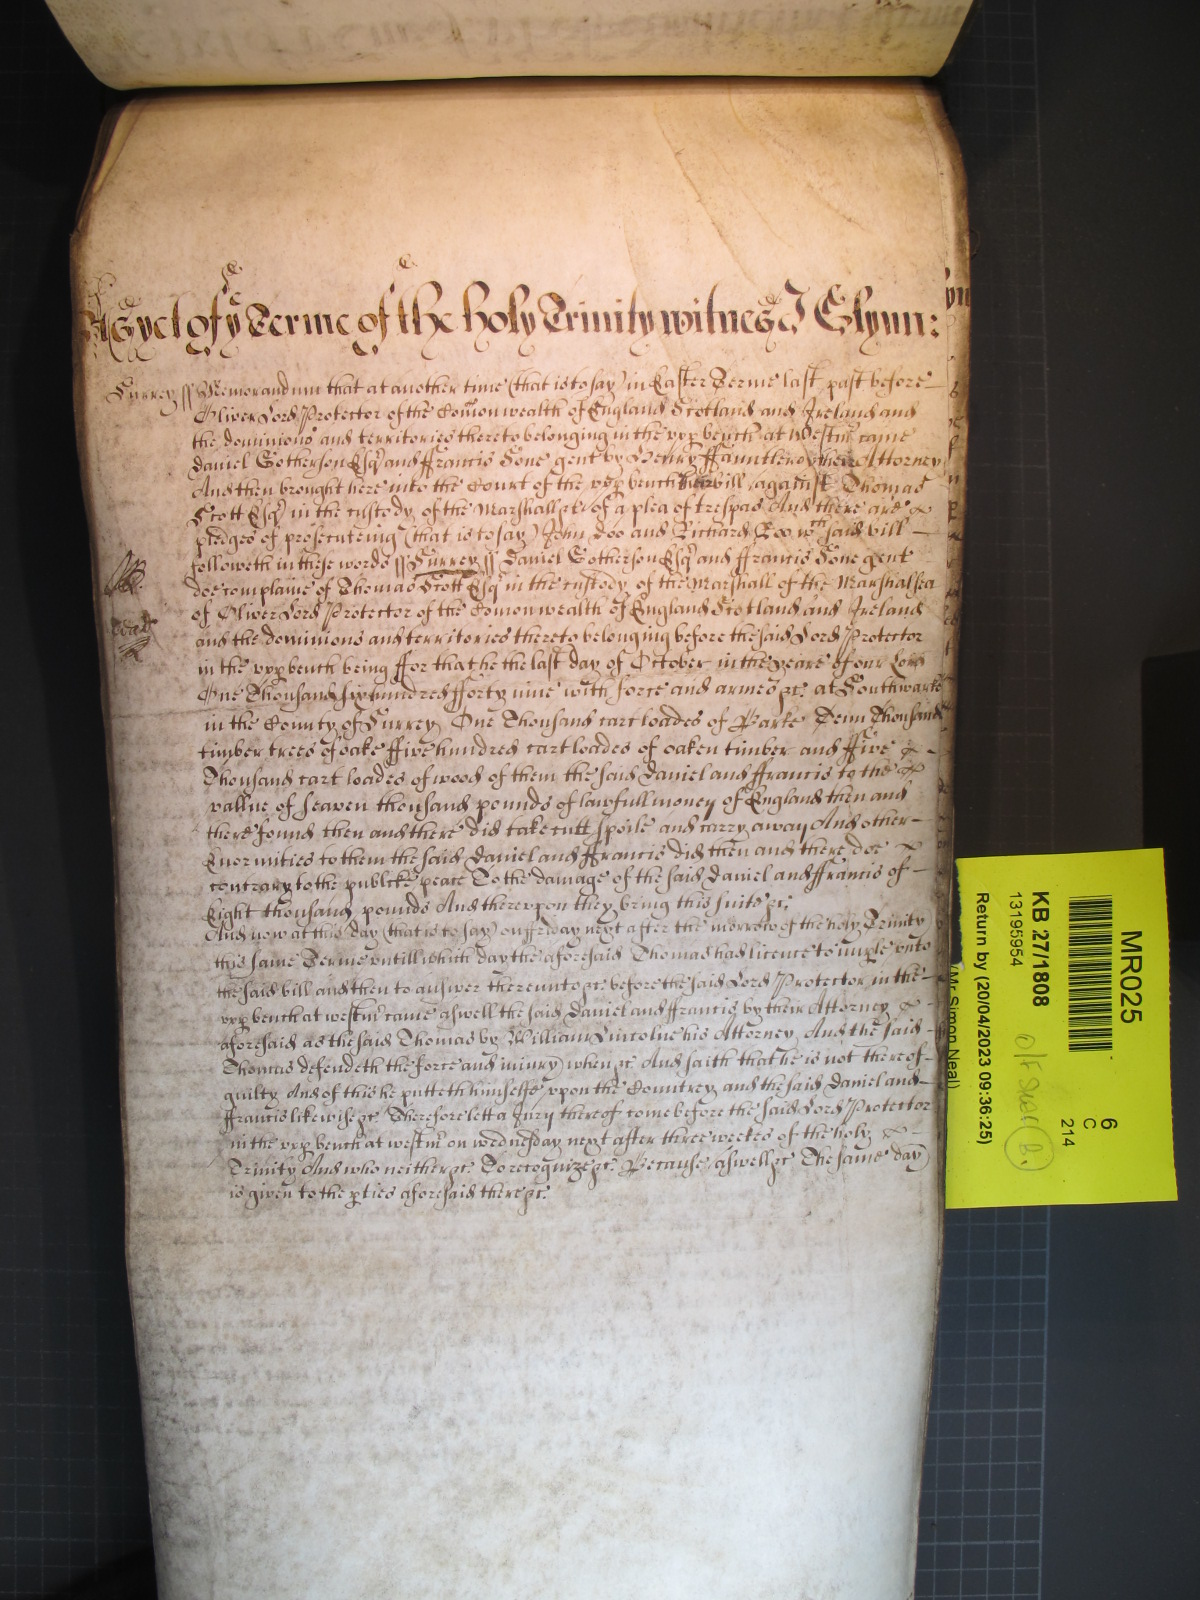 As yet of ye Terme of the holy Trinity witnes J Glynn:
Surrey ss Memorandum that at another time (that is to say) in Easter Terme last past before
Oliver Lord Protector of the Comonwealth of England Scotland and Ireland and
the dominions and territories thereto belonging in the upp bench at Westmr came
Daniel Gotherson Esqr and ffrancis Sone gent by Henry ffauntleroy their Attorney
And then brought here into the Court of the upp bench their bill against Thomas
Scott Esqr in the custody of the Marshall &c of a plea of trespas And there are
pledges of prosecuteing (that is to say) John Doo and Richard Roo wch said bill
followeth in these words ss Surrey ss Daniel Gotherson Esqr and ffrancis Sone gent
doe complaine of Thomas Scott Esqr in the custody of the Marshall of the Marshalsea
of Oliver Lord Protector of the Comonwealth of England Scotland and Ireland
and the dominions and territories thereto belonging before the said Lord Protector
in the upp bench being ffor that he the last day of October in the yeare of our Lord
One Thousand six hundred fforty nine with force and armes &c at Southwarke
in the County of Surrey One Thousand cart loades of Barke Tenn Thousand
timber trees of oake ffive hundred cart loades of oaken timber and ffive
Thousand cart loades of wood of them the said Daniel and ffrancis to the
vallue of seaven thousand pounds of lawfull money of England then and
there found then and there did take cutt spoile and carry away And other
Enormities to them the said Daniel and ffrancis did then and there doe
contrary to the publcke peace To the damage of the said Daniel and ffrancis of
Eight thousand pounds And thereupon they bring this suite &c
And now at this day (that is to say) on ffriday next after the morrow of the holy Trinity
this same Terme untill which day the aforesaid Thomas had licence to imple unto
the said bill and then to answer thereunto &c before the said Lord Protector in the
upp bench at westmr came aswell the said Daniel and ffrancis by their Attorney
aforesaid as the said Thomas by William Lincolne his Attorney And the said
Thomas defendeth the force and iniury when &c And saith that he is not thereof
guilty And of this he putteth himselfe upon the Countrey and the said Daniel and
ffrancis likewise &c Therefore lett a Jury thereof come before the said Lord Protector
in the upp bench at westmr on wednesday next after three weekes of the holy
Trinity And who neither &c To recognize &c Because aswell &c The same day
is given to the pties aforesaid there &c
MR025
KB 27/1808
13195954
Return by (20/04/2023 09:36:25)
(Mr Simon Neal)
6
C
214